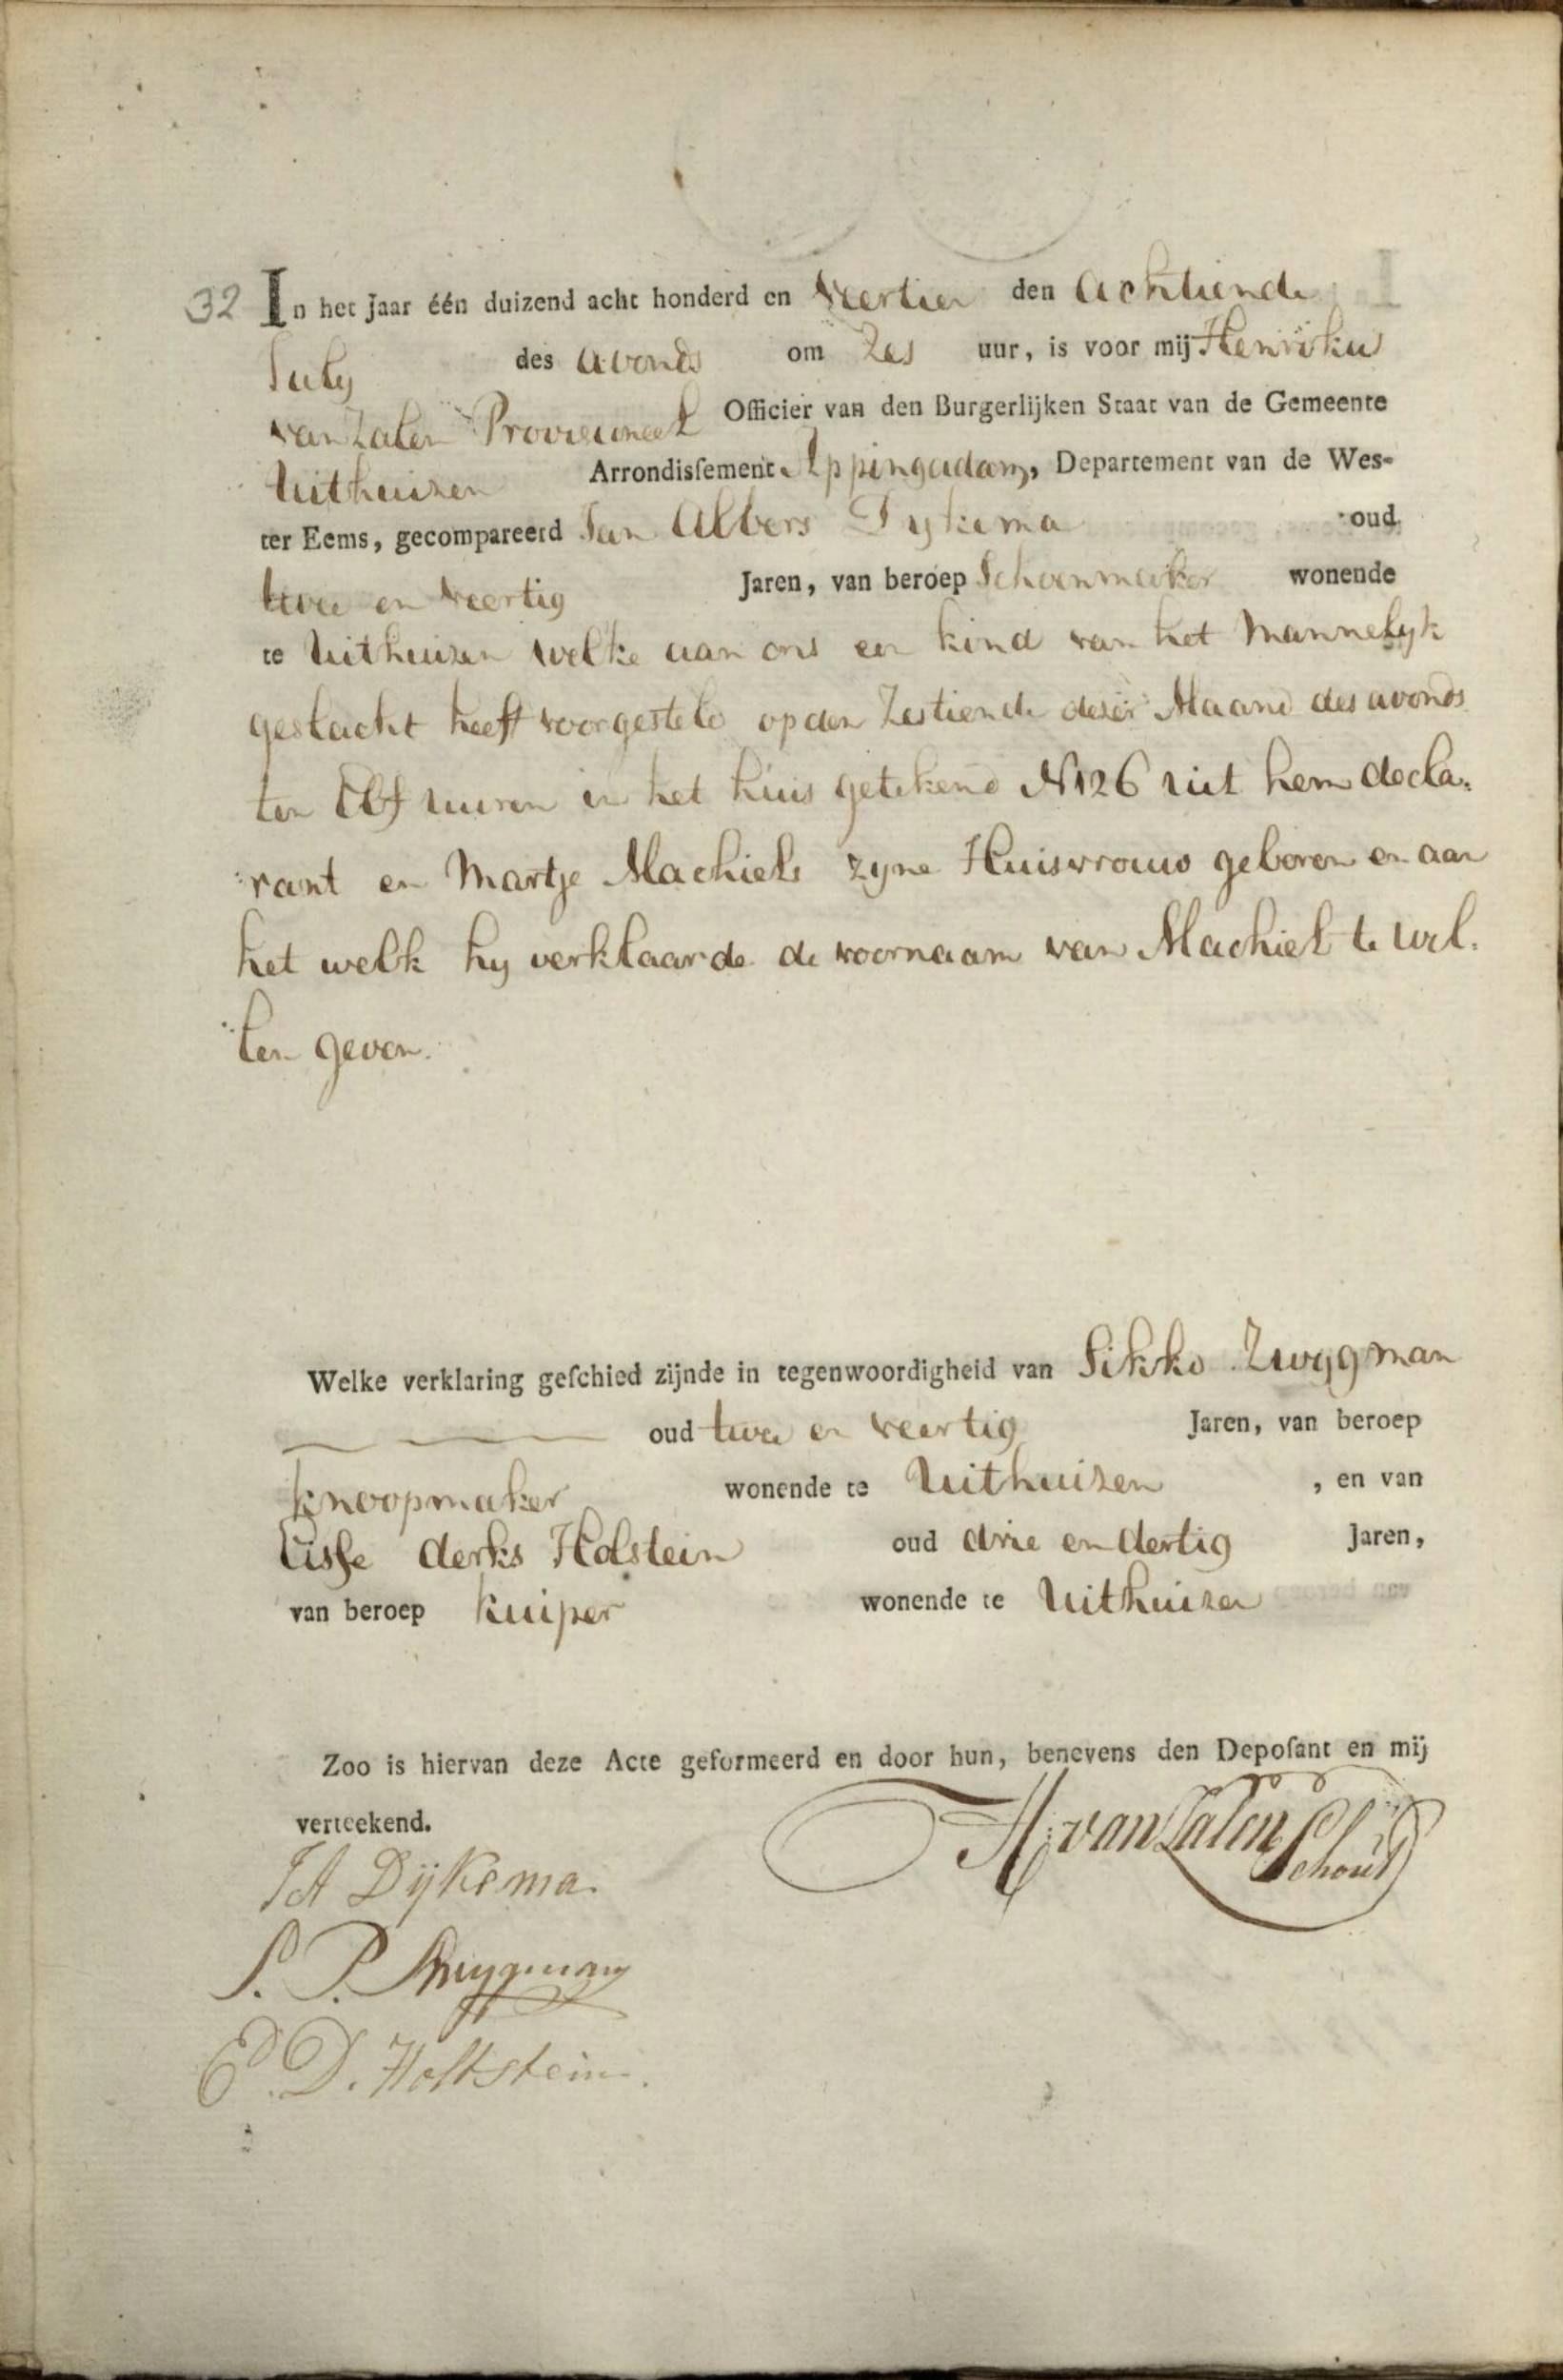 32 In het Jaar één duizend acht honderd en veertien den achttiende
July des avonds om Zes uur, is voor mij Henriku
van Zalen Provisioneel Officier van den Burgerlijken Staat van de Gemeente
Uithuizen Arrondisſement Appingadam, Departement van de Wes-
ter Eems, gecompareerd Jan Albers Dykema oud
twee en veertig Jaren, van beroep Schoenmaker wonende
te Uithuizen welke aan ons een kind van het Mannelyk
geslacht heeft voorgesteld op den Zestiende dezer Maand des avonds
ten Elf uuren in het huis getekend N126 uit hem decla:
:rant en Martje Machiels zyne Huisvrouw geboren en aan
het welk hy verklaarde de voornaam van Machiel te wil:
:len geven.
Welke verklaring geſchied zijnde in tegenwoordigheid van Sikko Zwygman
oud twee en veertig Jaren, van beroep
knoopmaker wonende te Uithuizen , en van
derks Holstein oud drie en dertig Jaren,
van beroep kuiper wonende te Uithuizen
Zoo is hiervan deze Acte geformeerd en door hun, benevens den Depoſant en mij
verteekend.
H: van Zalen Schout
JA Dÿkema.
S. P. Swygman
E. D. Holtstein.